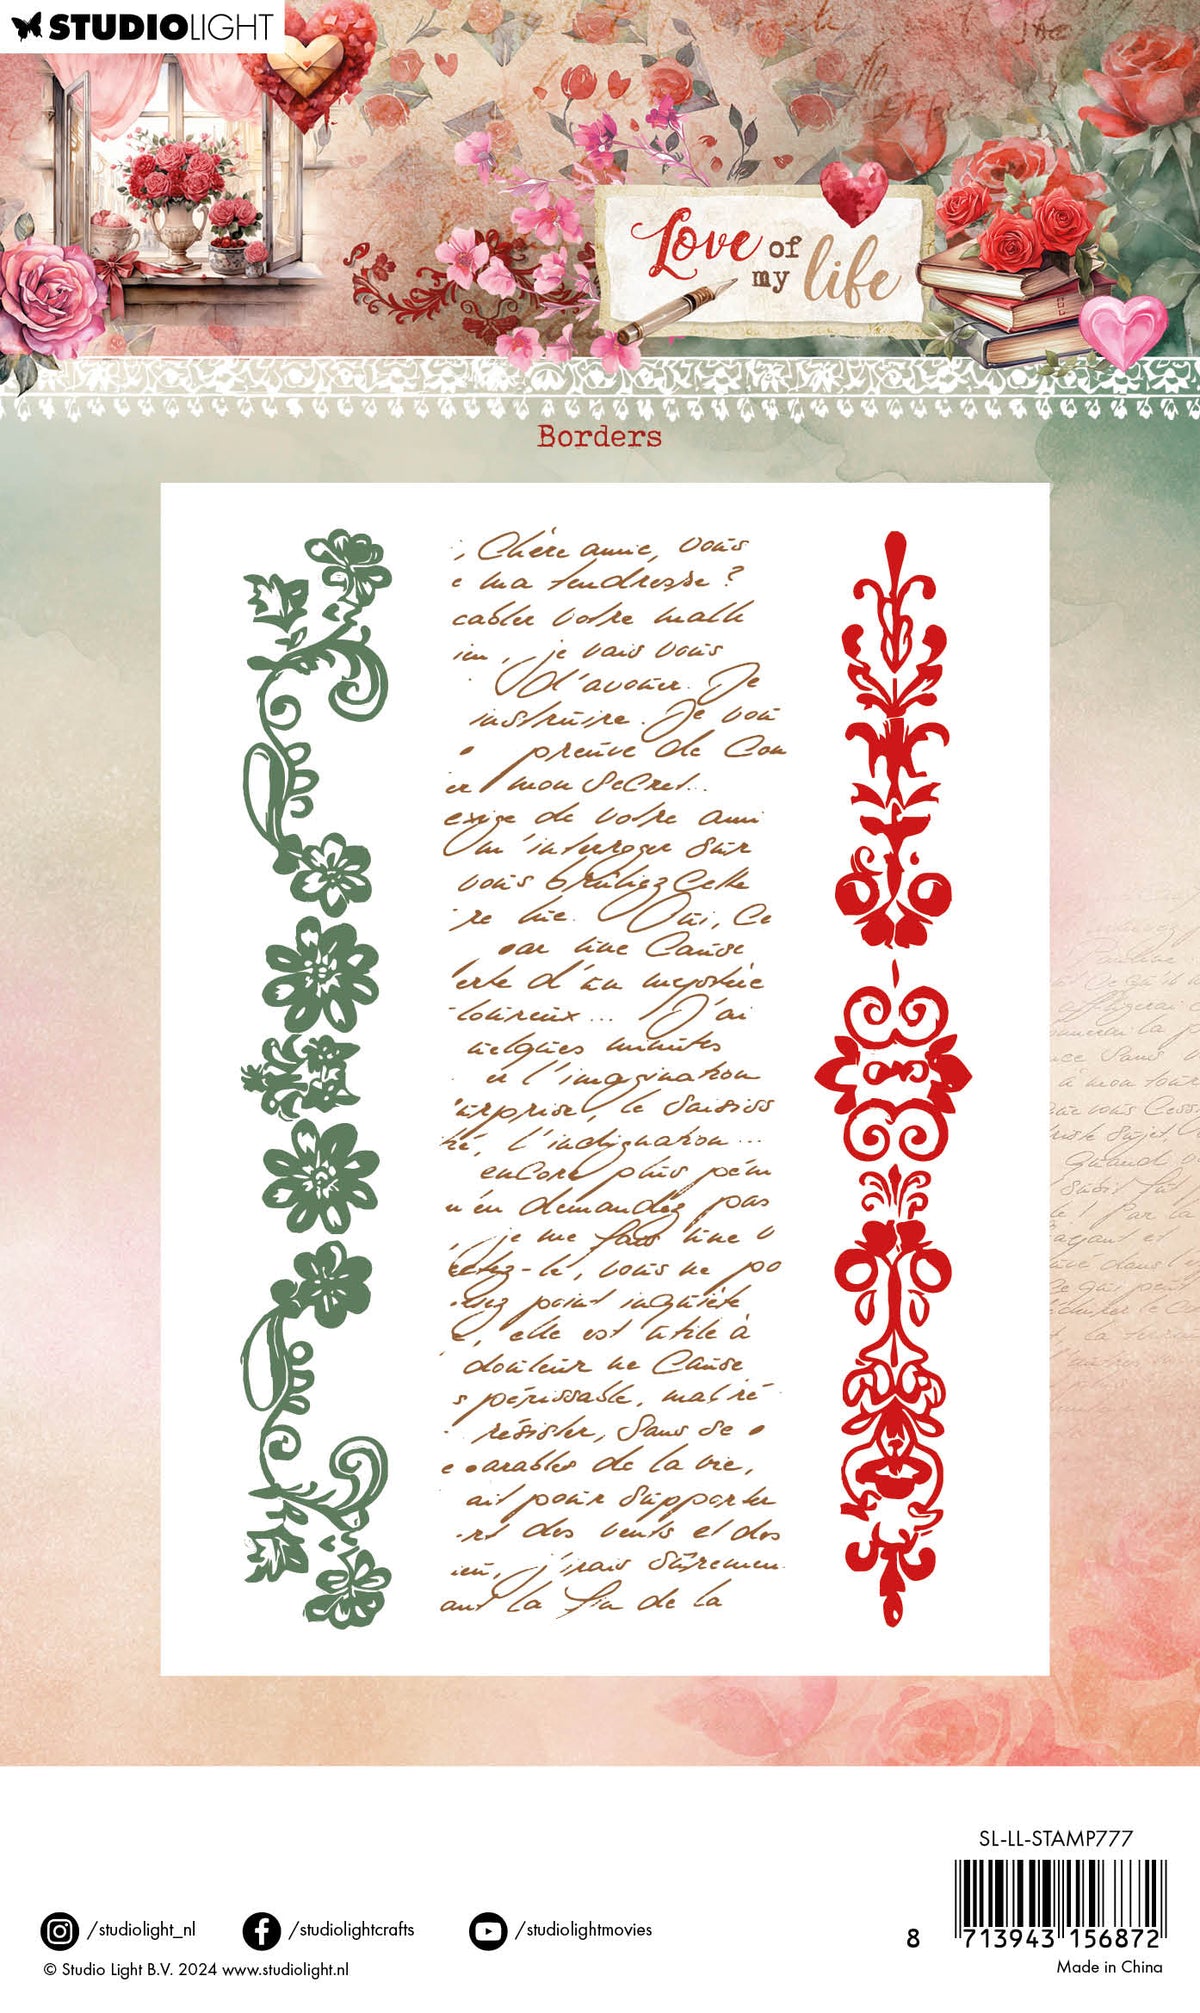 STUDIOLIGHT
Love of my life
Borders
Chère amie, vous
e ma tendresse ?
cabler votre malh
je vais vous
d'avouer. Je
instruire. Je vou
preuve de con
er mon secret...
exige de votre ami
m'interroger sur
vous brûliez cette
re vie. Oui, ce
par une cause
erte d'un mystère
loureux... J'ai
uelques minutes
er l'imagination
urprise, le saisiss
té, l'indignation...
encore plus pém
n'en demandez pas
je me fais une v
ctez-le, vous ne po
isez point inquiète
e, elle est utile à
douleur ne cause
s périssable, malré
résister, sans se
e parables de la vie,
ait pour supporter
rt des vents et des
ieu, j'irais sûremen
ant la fin de la
SL-LL-STAMP777
8 713943 156872
Made in China
/studiolight_nl
/studiolightcrafts
/studiolightmovies
© Studio Light B.V. 2024 www.studiolight.nl